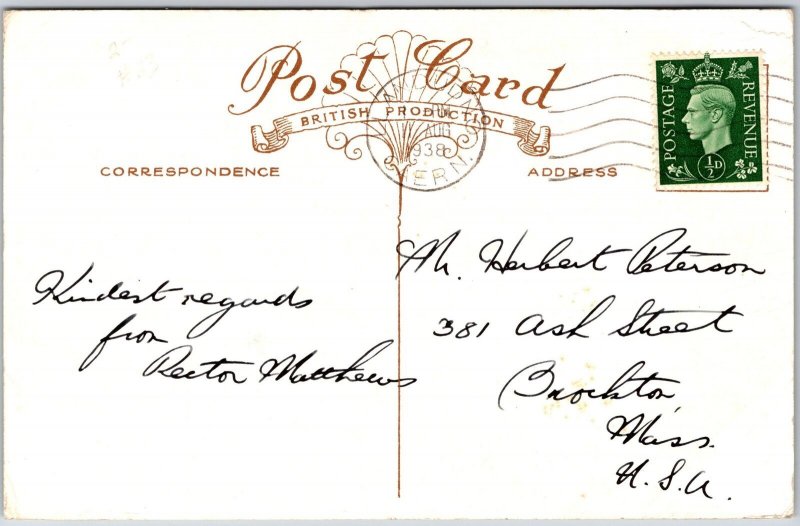 Post Card
BRITISH PRODUCTION
CORRESPONDENCE
ADDRESS
AUG
1938
POSTAGE
REVENUE
½D
Kindest regards
from
Rector Matthews
Mr. Herbert Peterson
381 Ash Street
Brockton,
Mass.
U.S.A.